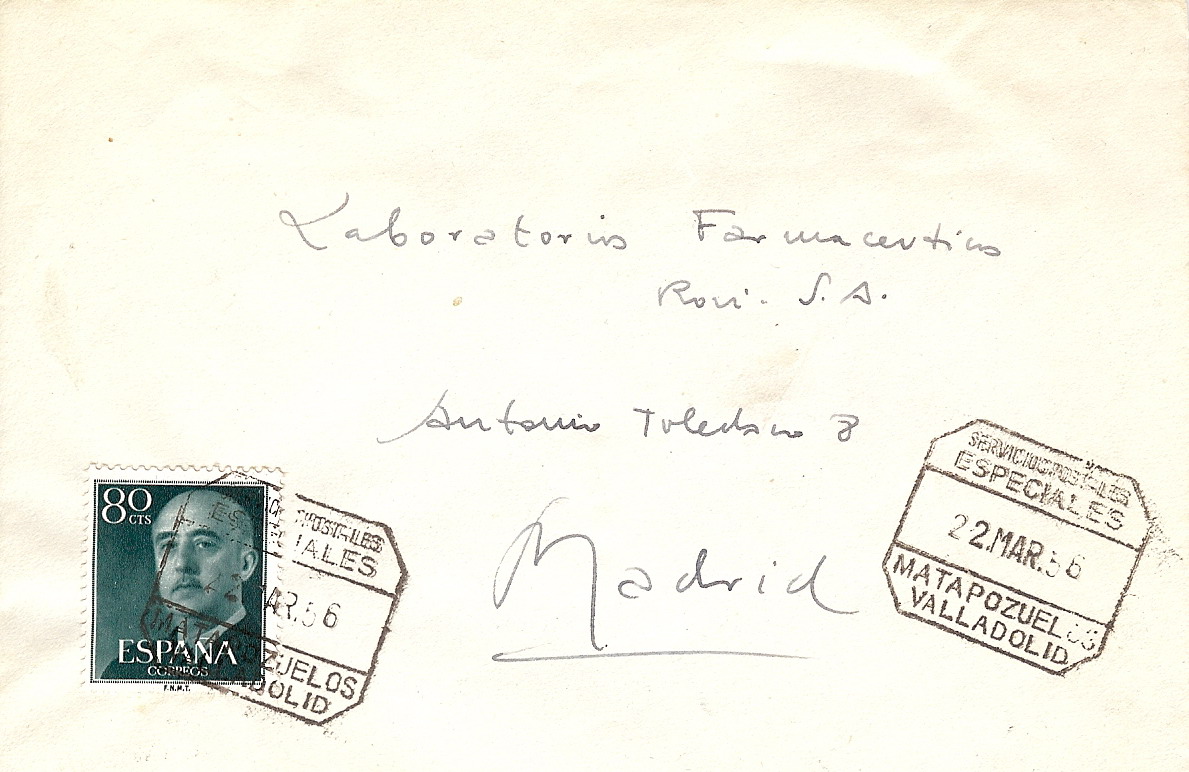 Laboratorios Farmaceuticos
Rovi. S. A.
Antonio Toledano 8
Madrid
80 CTS
ESPAÑA
CORREOS
F.N.M.T.
SERVICIOS POSTALES
ESPECIALES
MAR.56
MATAPOZUELOS
VALLADOLID
SERVICIOS POSTALES
ESPECIALES
22.MAR.56
MATAPOZUELOS
VALLADOLID